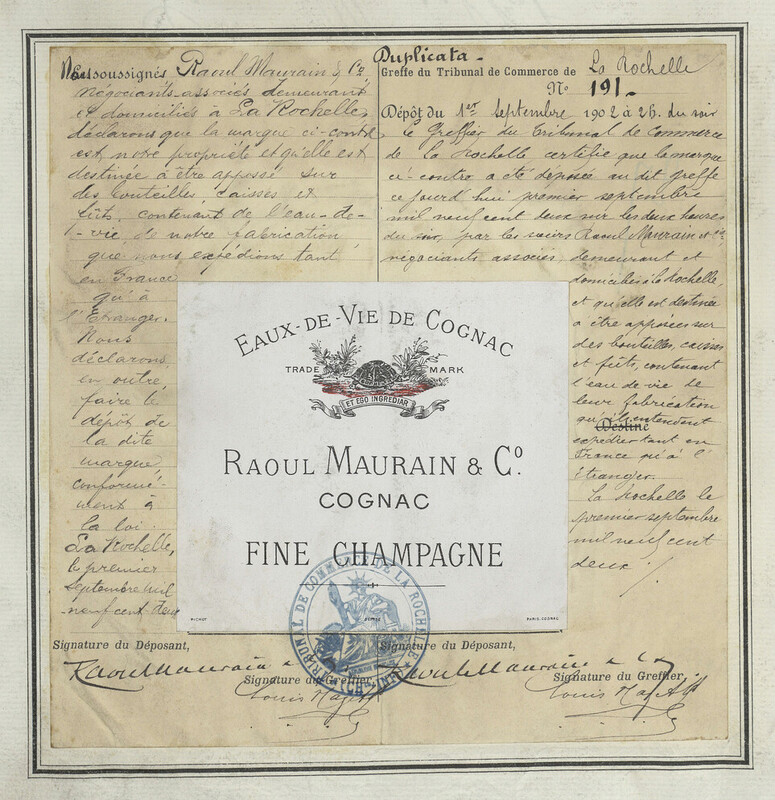 Duplicata.
Nous soussignés Raoul Maurain & Co
négociants associés demeurant
et domiciliés à La Rochelle,
déclarons que la marque ci-contre
est notre propriété et qu'elle est
destinée à être apposée sur
des bouteilles caisses et
fûts, contenant de l'eau-de-
-vie, de notre fabrication
que nous expédions tant
en France
qu'à
l'Etranger.
Nous
déclarons
en outre
faire le
dépôt de
la dite
marque
conformé-
ment à
la loi.
La Rochelle,
le premier
septembre mil
neuf cent deux
Signature du Déposant,
Raoul Maurain & Co
Signature du Greffier,
Louis
Greffe du Tribunal de Commerce de La Rochelle
No 191.
Dépôt du 1er Septembre 1902 à 2h. du soir
le Greffier du Tribunal de Commerce
de la Rochelle certifie que la marque
ci-contre a été déposée au dit greffe
ce jourd'hui premier septembre
mil neuf cent deux sur les deux heures
du soir, par les sieurs Raoul Maurain et Cie
négociants associés demeurant et
domiciliés à la Rochelle,
et qu'elle est destinée
à être apposée sur
des bouteilles, caisses
et fûts, contenant
l'eau de vie de
leur fabrication
qu'ils entendent
Destiné
expédier tant en
France qu'à l'
étranger.
La Rochelle le
premier septembre
mil neuf cent
deux ./.
Signature du Déposant,
Raoul Maurain & Co
Signature du Greffier,
Louis
EAUX-DE-VIE DE COGNAC
TRADE MARK
ET EGO INGREDIAR
RAOUL MAURAIN & Co.
COGNAC
FINE CHAMPAGNE
PICHOT DÉPOSÉ PARIS, COGNAC
TRIBUNAL DE COMMERCE DE LA ROCHELLE